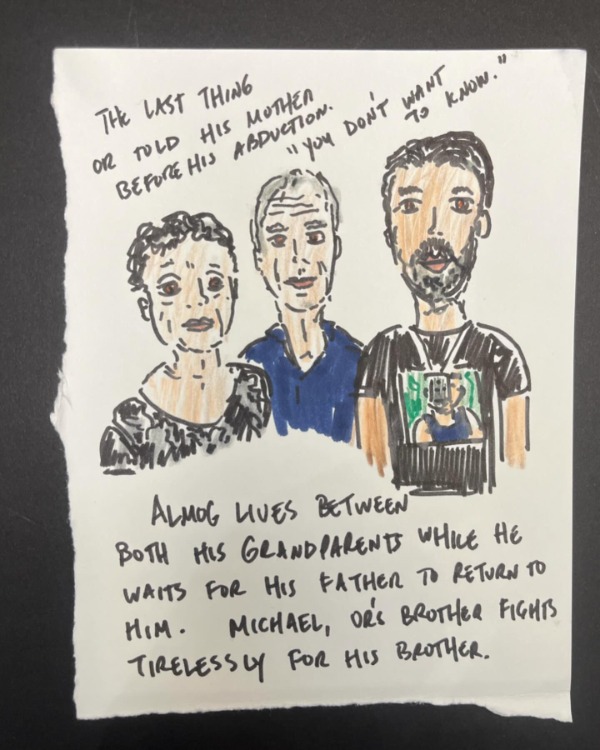 THE LAST THING
OR TOLD HIS MOTHER
BEFORE HIS ABDUCTION.
"YOU DON'T WANT
TO KNOW."
ALMOG LIVES BETWEEN
BOTH HIS GRANDPARENTS WHILE HE
WAITS FOR HIS FATHER TO RETURN TO
HIM. MICHAEL, OR'S BROTHER FIGHTS
TIRELESSLY FOR HIS BROTHER.